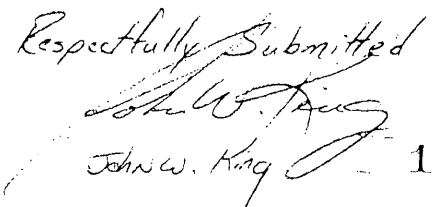 Respectfully Submitted
John W. King
John W. King 1